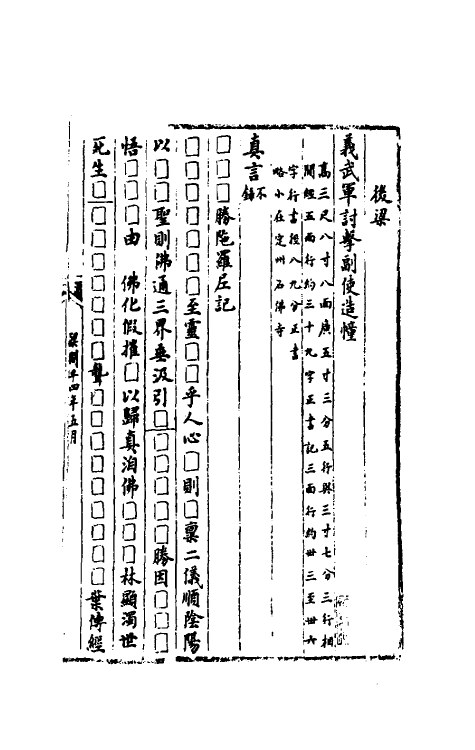 後梁
義武軍討擊副使造幢
高三尺八寸八面廣五寸三分五行與三寸七分三行相
間經五面行約三十九字正書記三面行約卅三至卅六
字行書徑八九分正書
略小在定州石佛寺
真言不錄
□□□勝陁羅尼記
□□□□□□至靈□□乎人心□則□稟二儀順陰陽
以□□聖則佛通三界垂汲引□□□□□勝因□□□
悟□□□由 佛化假摧□以歸真洎佛□□□林顯濁世
死生□□□□□□□聾□□□□□□□□□葉傳經
梁開平四年五月